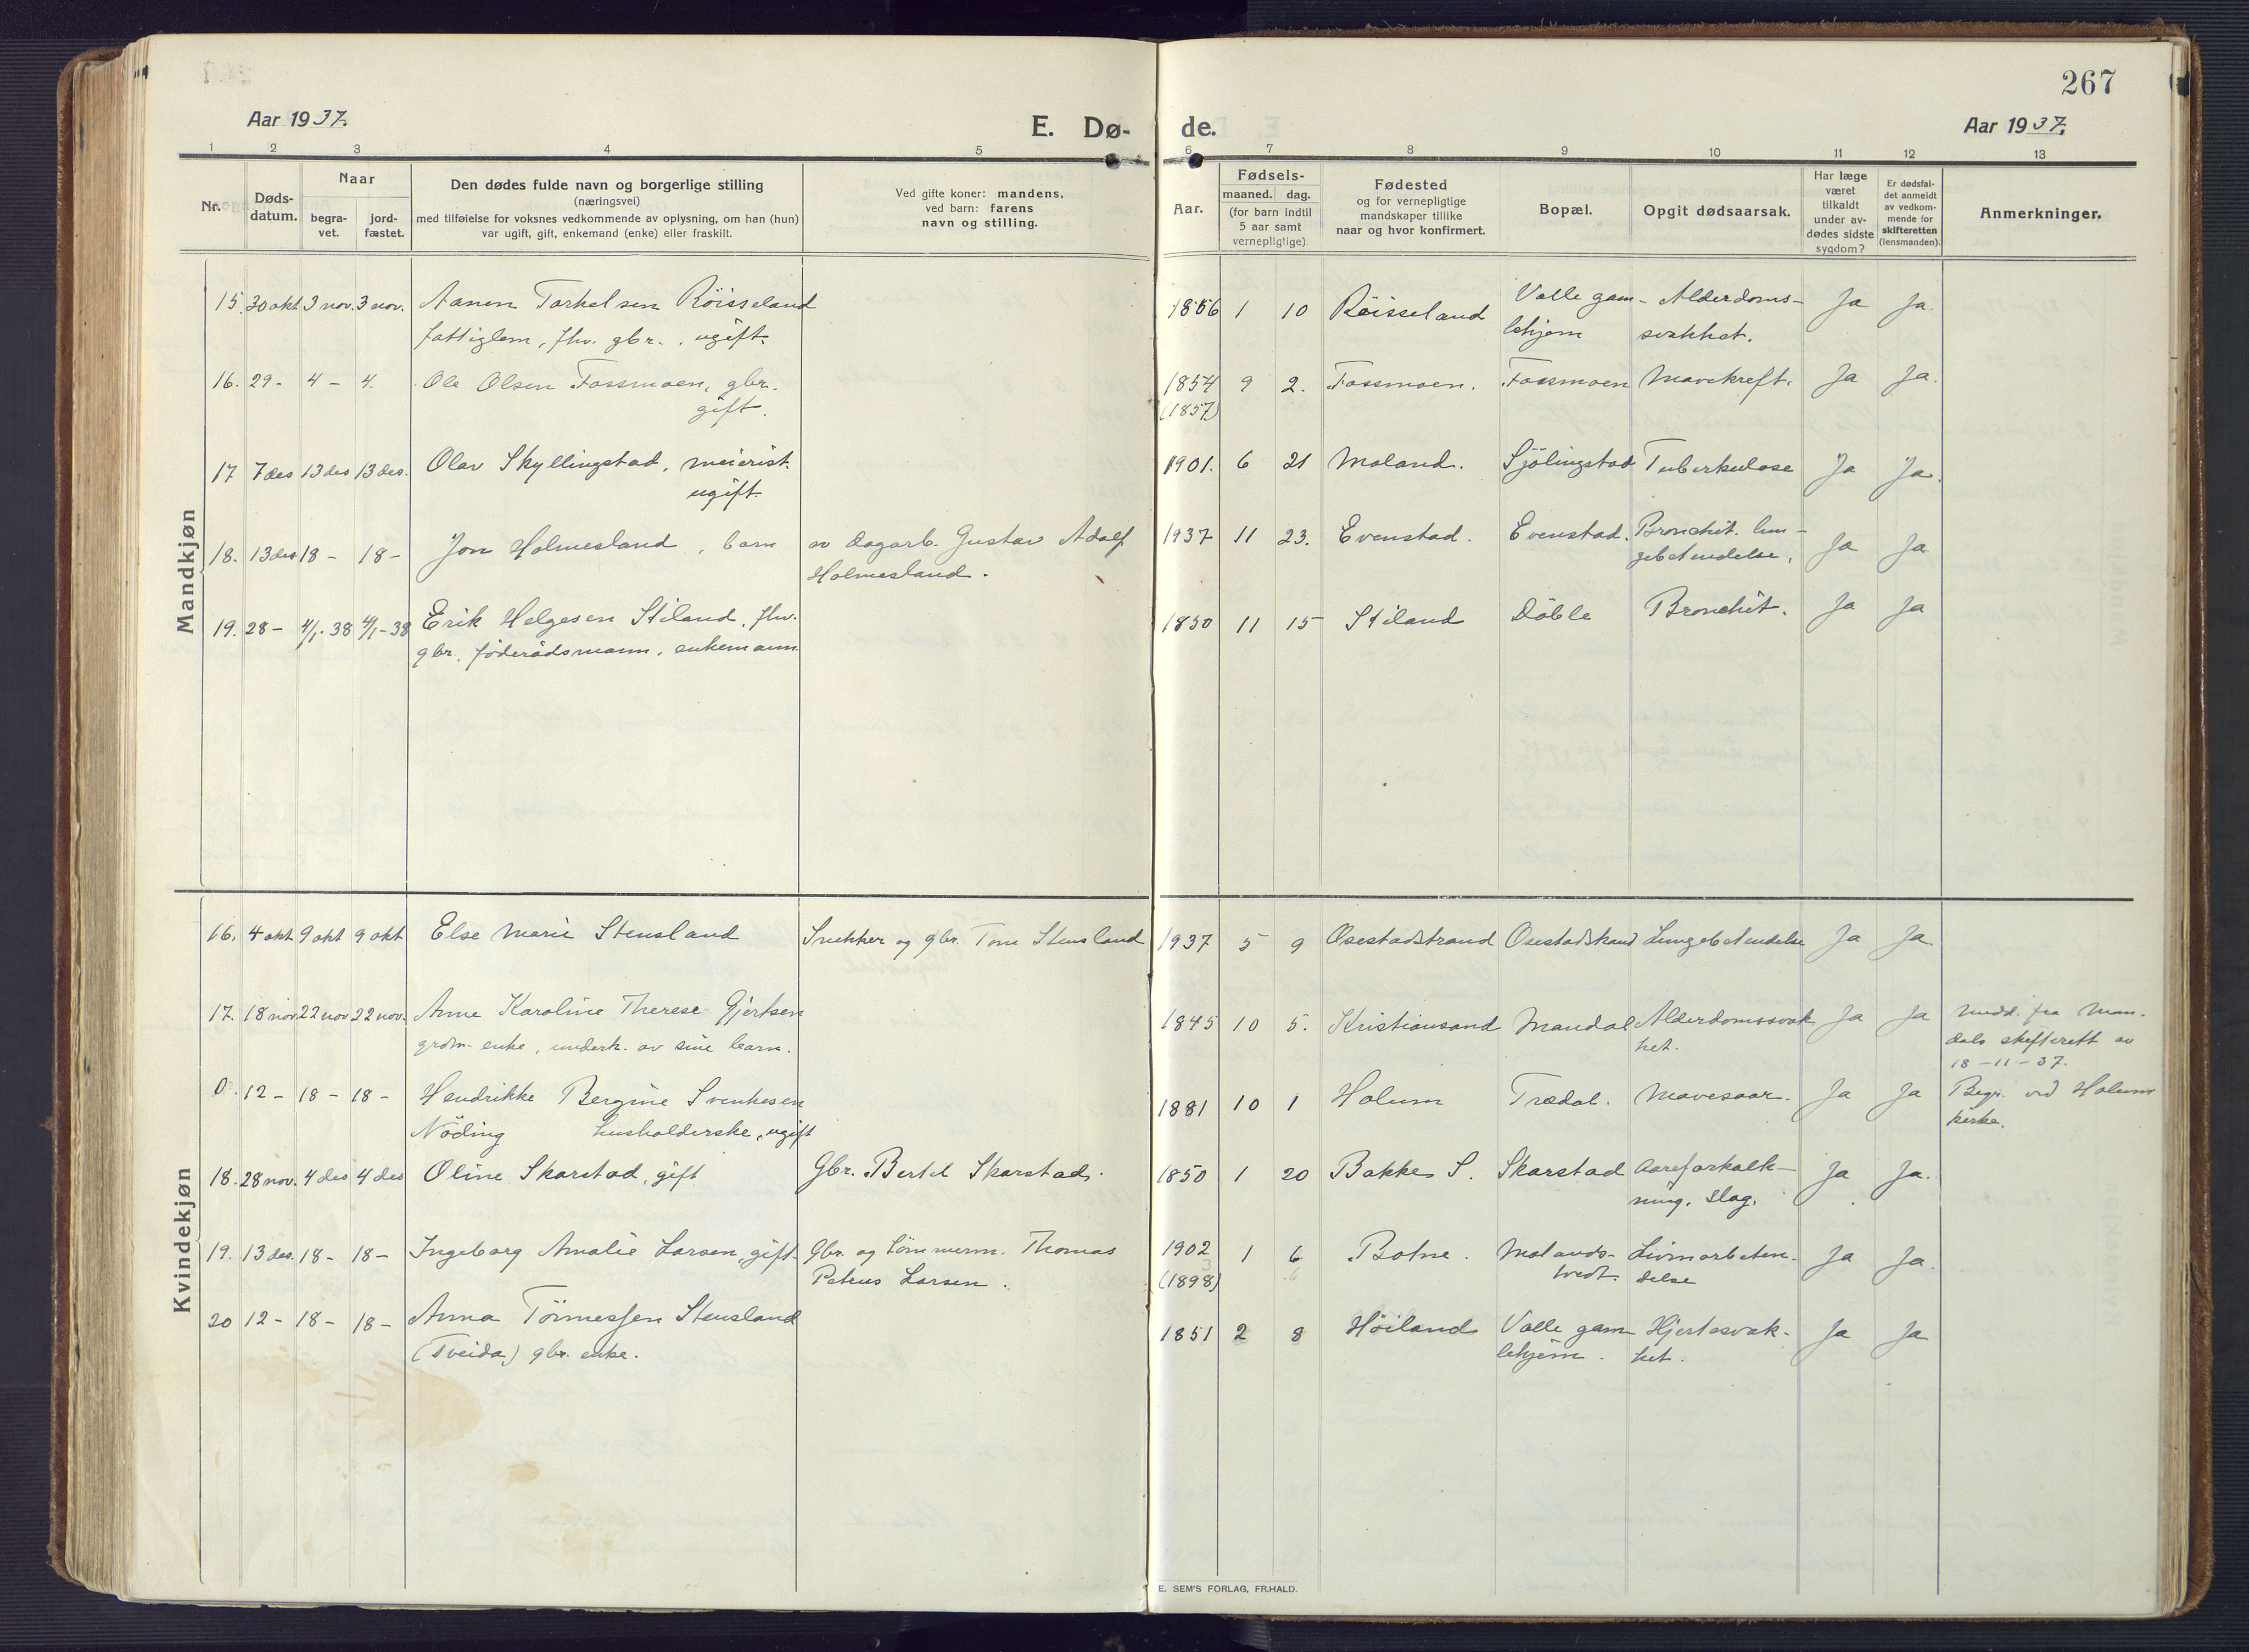 267
Aar 1937.
E. Dø-
de.
Aar 1937.
1 2 3 4 5 6 7 8 9 10 11 12 13
Nr.
Døds-
datum.
Naar
begra-
vet.
jord-
fæstet.
Den dødes fulde navn og borgerlige stilling
(næringsvei)
med tilføielse for voksnes vedkommende av oplysning, om han (hun)
var ugift, gift, enkemand (enke) eller fraskilt.
Ved gifte koner: mandens,
ved barn: farens
navn og stilling.
Aar.
Fødsels-
maaned. dag.
(for barn indtil
5 aar samt
vernepligtige)
Fødested
og for vernepligtige
mandskaper tillike
naar og hvor konfirmert.
Bopæl.
Opgit dødsaarsak.
Har læge
været
tilkaldt
under av-
dødes sidste
sygdom?
Er dødsfal-
det anmeldt
av vedkom-
mende for
skifteretten
(lensmanden).
Anmerkninger.
Mandkjøn
15. 30 okt 3 nov. 3 nov. Aanen Torkelsen Röisseland 1856 1 10 Röisseland Valle gam- Alderdoms- Ja Ja.
fattiglem, fhv. gbr., ugift. lehjem svakhet.
16. 29- 4- 4. Ole Olsen Fossmoen, gbr. 1854 9 2. Fossmoen. Fossmoen Mavekreft. Ja Ja.
gift. (1857)
17 7 des 13 des 13 des. Olav Skyllingstad, meierist. 1901. 6 21 Moland. Sjölingstad Tuberkulose Ja Ja.
ugift.
18. 13 des 18- 18- Jon Holmesland, barn av dagarb. Gustav Adolf 1937 11 23. Evenstad. Evenstad. Bronchit. lun- Ja Ja
Holmesland. gebetendelse.
19. 28- 4/1-38 4/1-38 Erik Helgesen Stiland, fhv. 1850 11 15 Stiland Döble Bronchit. Ja Ja
gbr., föderådsmann, enkemann.
Kvindekjøn
16. 4 okt 9 okt 9 okt Else Marie Stensland Snekker og gbr. Tom Stensland 1937 5 9 Osestadstrand Osestadstrand Lungebetendelse Ja Ja.
17. 18 nov. 22 nov 22 nov. Anne Karoline Therese Gjertsen 1845 10 5. Kristiansand Mandal Alderdomssvak Ja Ja Medd. fra Man-
grdm- enke, underh. av sine barn. het. dals skifterett av
18-11-37.
0. 12- 18- 18- Hendrikke Bergine Svenkesen 1881 10 1 Holum Trædal. Mavesaar. Ja Ja Begr. ved Holum
Nöding husholderske, ugift kirke.
18. 28 nov. 4 des 4 des Oline Skarstad, gift Gbr. Bertel Skarstad. 1850 1 20 Bakke S. Skarstad Aareforkalk- Ja Ja.
ning, slag.
19. 13 des. 18- 18- Ingeborg Amalie Larsen, gift Gbr. og tömmerm. Thomas 1902 1 6 Botne. Molands- Livmorbeten- Ja Ja.
Petrus Larsen. (1898) 3 6 tvedt. delse
20 12- 18- 18- Anna Tönnessen Stensland 1851 2 8 Höiland Valle gam Hjertesvak- Ja Ja
(Tveida) gbr. enke. lehjem. het.
E. SEM'S FORLAG, FR.HALD.